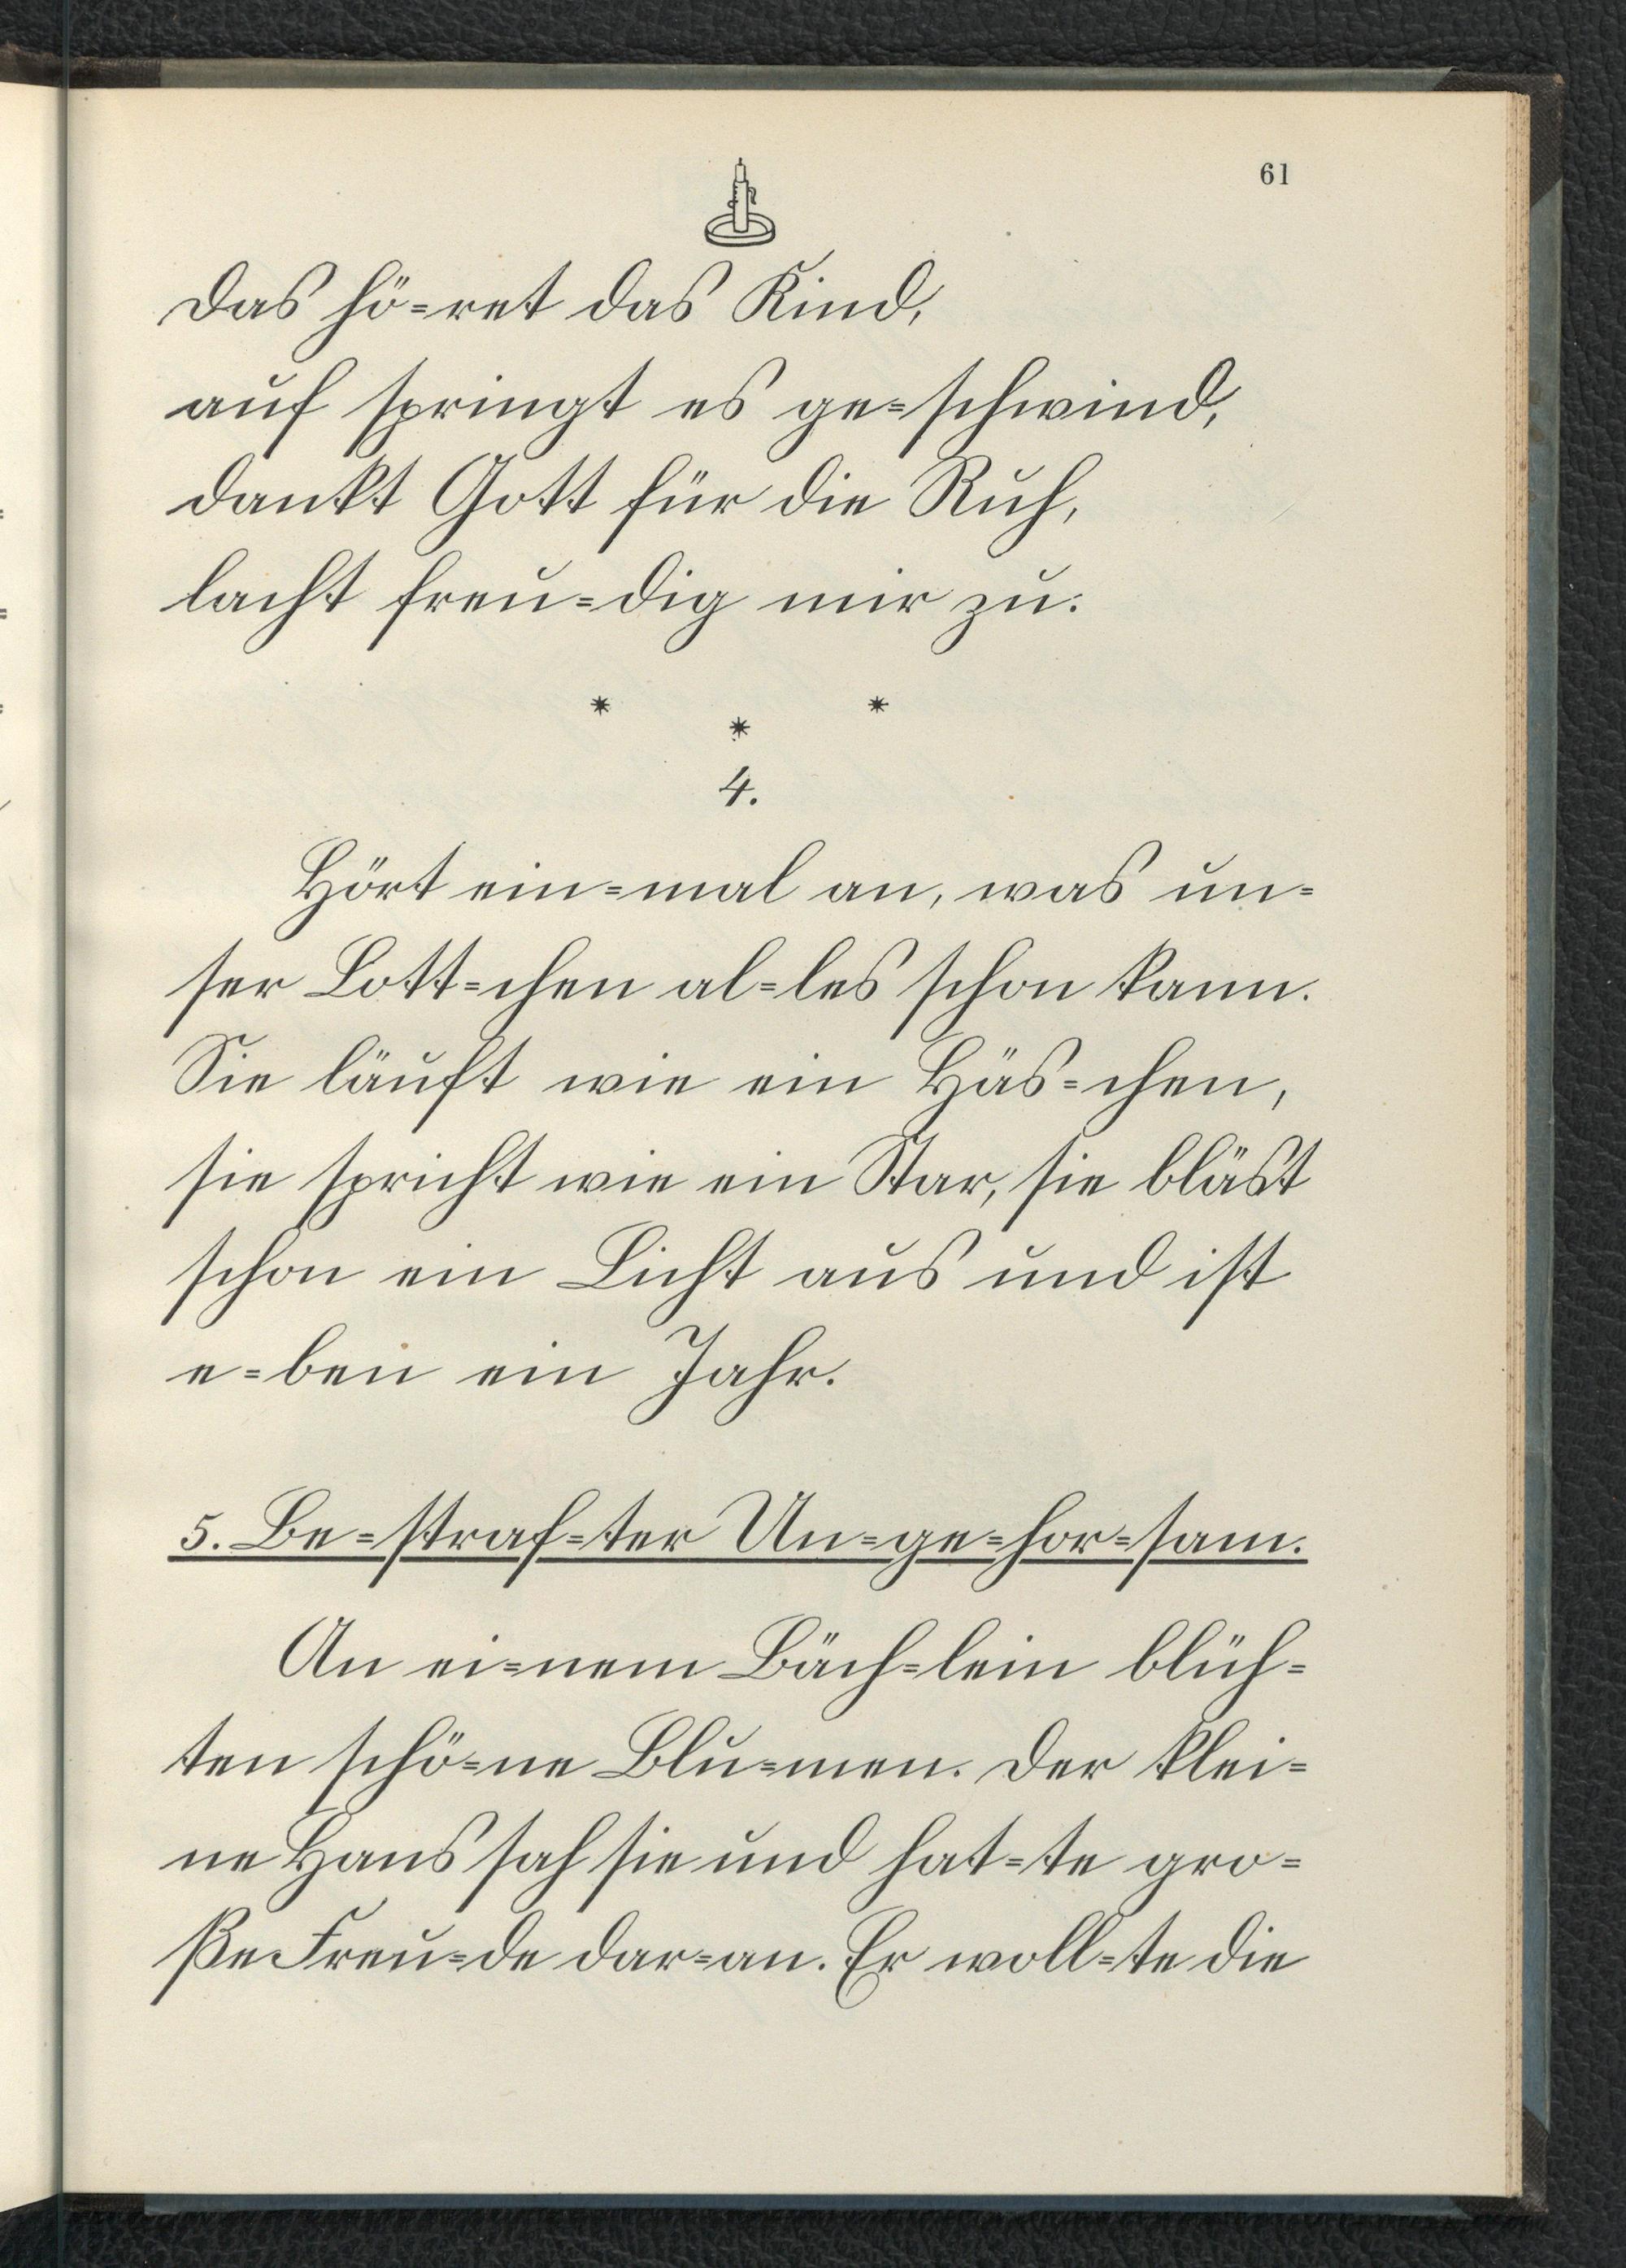 61
Das hö=ret das Kind,
auf springt es ge=schwind,
dankt Gott für die Ruh,
lacht freu=dig mir zu.
* * *
4.
Hört ein=mal an, was un=
ser Lott=chen al=les schon kann.
Sie läuft wie ein Häs=chen,
sie spricht wie ein Star, sie bläst
schon ein Licht aus und ist
e=ben ein Jahr.
5. Be=straf=ter Un=ge=hor=sam.
An ei=nem Bäch=lein blüh=
ten schö=ne Blu=men. Der klei=
ne Hans sah sie und hat=te gro=
ße Freu=de dar=an. Er woll=te die